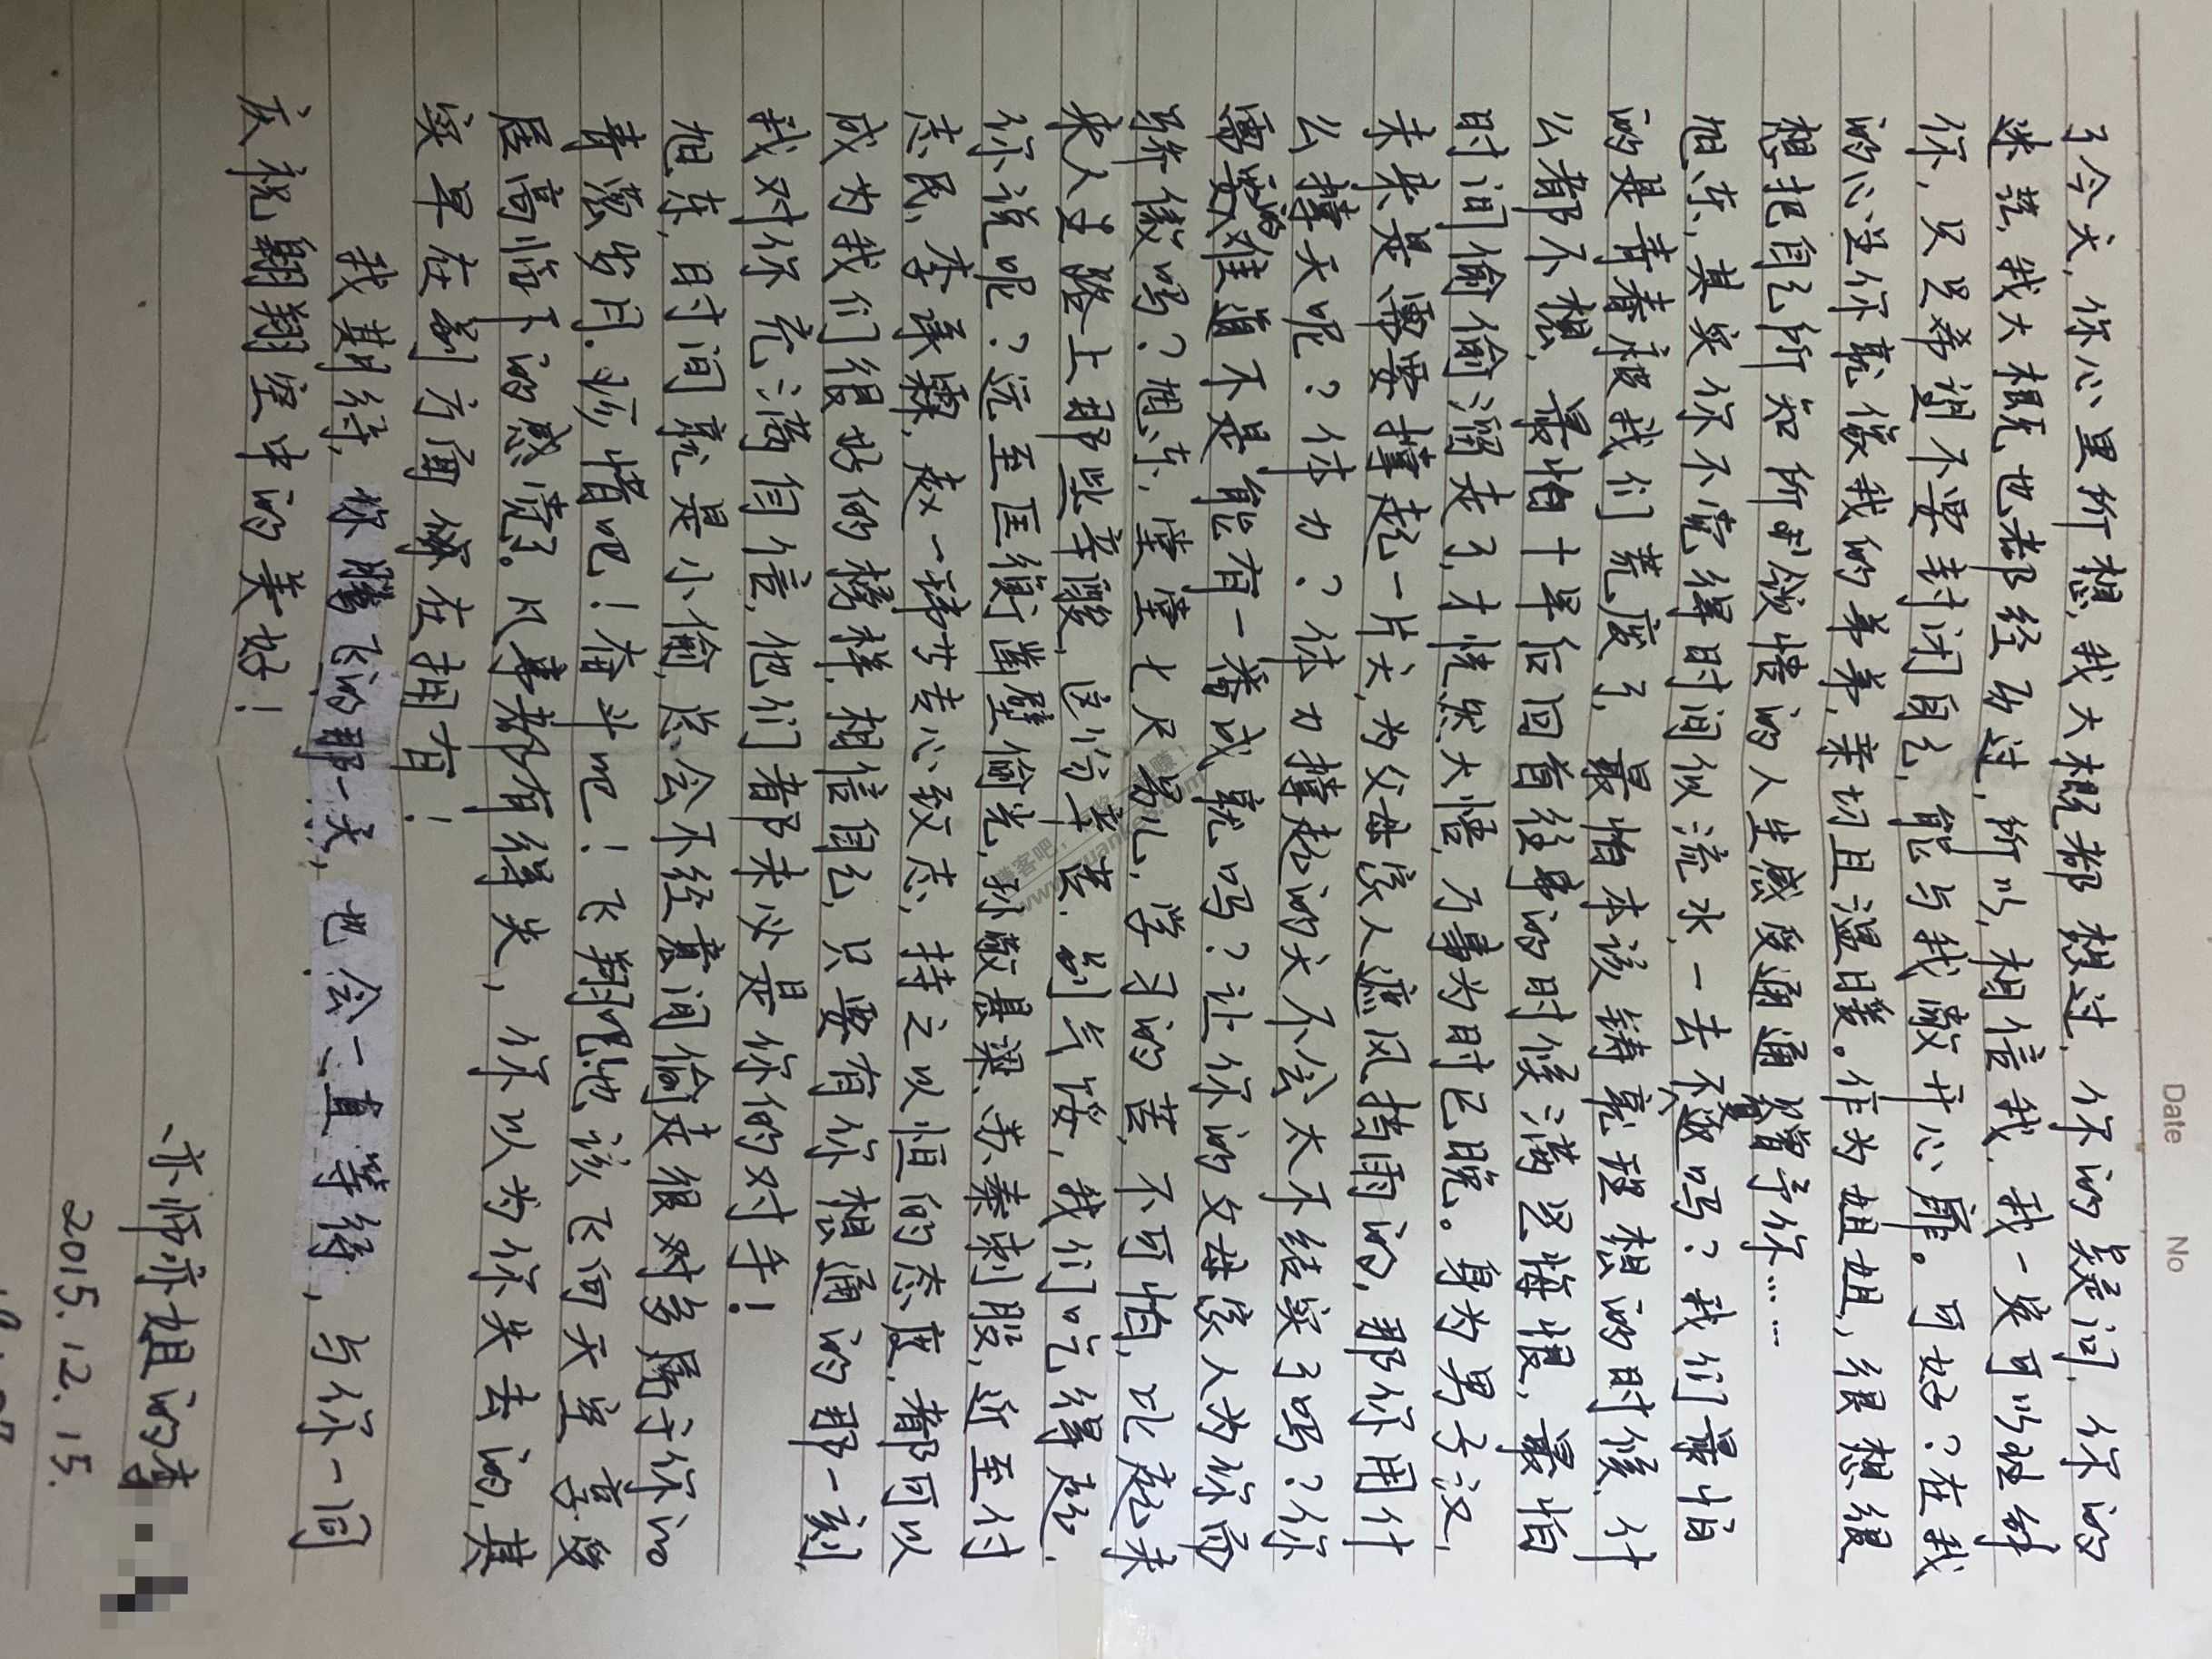 Date No
了今天，你心里所想，我大概都想过，你的疑问，你的
迷茫，我大概也都经历过，所以，相信我，我一定可以理解
你，只是希望不要封闭自己，能与我敞开心扉。可好？在我
的心里你就像我的弟弟，亲切且温暖。作为姐姐，很想很
想把自己所知所领悟的人生感受通通赠予你……
旭东，其实你不觉得时间似流水，一去不返吗？我们最怕
的是青春被我们荒废了，最怕本该铸就理想的时候，什
么都不想，最怕十年后回首往事的时候满是悔恨，最怕
时间偷偷溜走了，才恍然大悟，万事为时已晚。身为男子汉，
未来是需要撑起一片天，为父母家人遮风挡雨的，那你用什
么撑天呢？体力？体力撑起的天不会太不结实了吗？你
需要的难道不是能有一番成就吗？让你的父母家人为你而
骄傲吗？旭东，堂堂七尺男儿，学习的苦，不可怕，比起未
来人生路上那些辛酸，这份辛苦，别气馁，我们吃得起，
你说呢？远至匡衡凿壁偷光，孙敬悬梁、苏秦刺股，近至付
志民，李承霖，赵一琦专心致志，持之以恒的态度，都可以
成为我们很好的榜样，相信自己，只要有你想通的那一刻，
我对你充满自信，他们者都未必是你的对手！
旭东，时间就是小偷，总会不经意间偷走很对多属于你的
青葱岁月。珍惜吧！奋斗吧！飞翔吧！他该飞向天空享受
居高临下的感觉了。凡事都有得失，你以为你失去的，其
实早在别方角你在拥有！
我期待，你腾飞的那一天，也会一直等待，与你一同
庆祝翱翔空中的美好！
亦师亦姐的李
2015.12.15.
赚客吧，有奖一起赚！
www.zuanke8.com